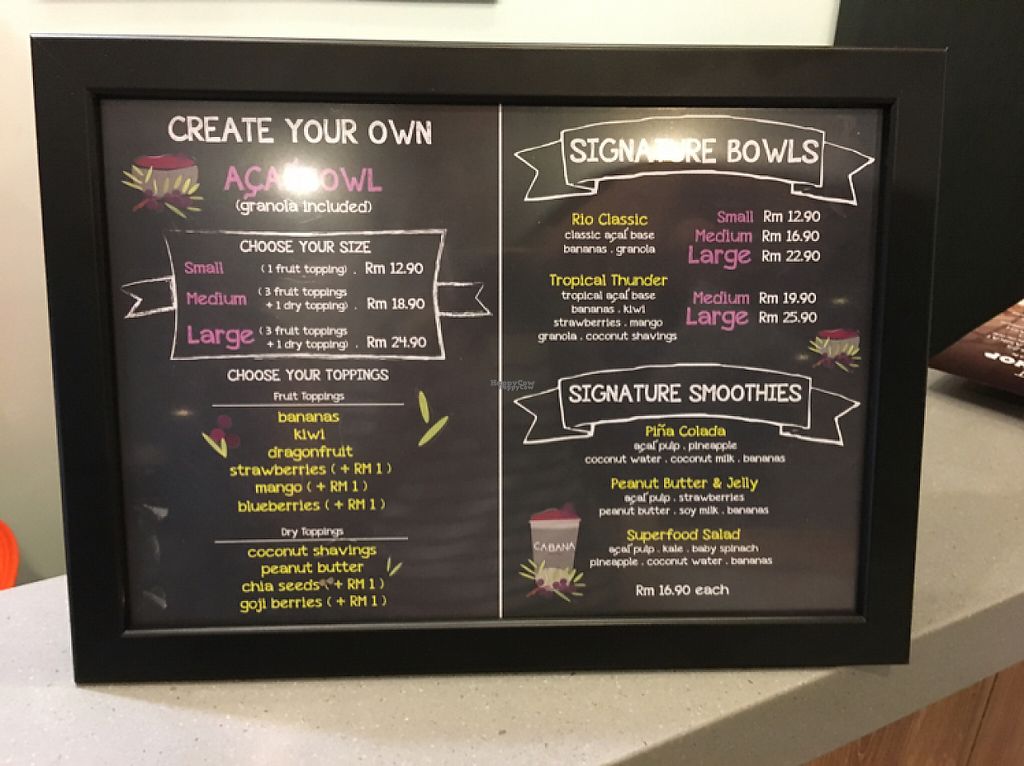 CREATE YOUR OWN
AÇAÍ BOWL
(granola included)
CHOOSE YOUR SIZE
Small (1 fruit topping) . Rm 12.90
Medium (3 fruit toppings
+ 1 dry topping) . Rm 18.90
Large (3 fruit toppings
+ 1 dry topping) . Rm 24.90
CHOOSE YOUR TOPPINGS
Fruit Toppings
bananas
kiwi
dragonfruit
strawberries ( + RM 1 )
mango ( + RM 1 )
blueberries ( + RM 1 )
Dry Toppings
coconut shavings
peanut butter
chia seeds ( + RM 1 )
goji berries ( + RM 1 )
SIGNATURE BOWLS
Rio Classic
classic açaí base
bananas . granola
Small Rm 12.90
Medium Rm 16.90
Large Rm 22.90
Tropical Thunder
tropical açaí base
bananas . kiwi
strawberries . mango
granola . coconut shavings
Medium Rm 19.90
Large Rm 25.90
SIGNATURE SMOOTHIES
Piña Colada
açaí pulp . pineapple
coconut water . coconut milk . bananas
Peanut Butter & Jelly
açaí pulp . strawberries
peanut butter . soy milk . bananas
Superfood Salad
açaí pulp . kale . baby spinach
pineapple . coconut water . bananas
Rm 16.90 each
CABANA
HappyCow